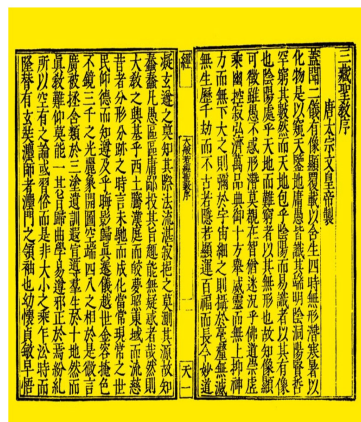 三藏聖教序
唐太宗文皇帝製
蓋聞二儀有像顯覆載以含生四時無形潛寒暑以
化物是以窺天鑒地庸愚皆識其端明陰洞陽賢哲
罕窮其數然而天地包乎陰陽而易識者以其有像
也陰陽處乎天地而難窮者以其無形也故知像顯
可徵雖愚不惑形潛莫覩在智猶迷況乎佛道崇虛
乘幽控寂弘濟萬品典御十方舉威靈而無上抑神
力而無下大之則彌於宇宙細之則攝於毫釐無滅
無生歷千劫而不古若隱若顯運百福而長今妙道
經
天一
凝玄遵之莫知其際法流湛寂挹之莫測其源故知
蠢蠢凡愚區區庸鄙投其旨趣能無疑惑者哉然則
大教之興基乎西土騰漢庭而皎夢照東域而流慈
昔者分形分跡之時言未馳而成化當常現常之世
民仰德而知遵及乎晦影歸真遷儀越世金容掩色
不鏡三千之光麗象開圖空端四八之相於是微言
廣被拯含類於三塗遺訓遐宣導群生於十地然而
真教難仰莫能一其旨歸曲學易遵邪正於焉紛糾
所以空有之論或習俗而是非大小之乘乍沿時而
隆替有玄奘法師者法門之領袖也幼懷貞敏早悟